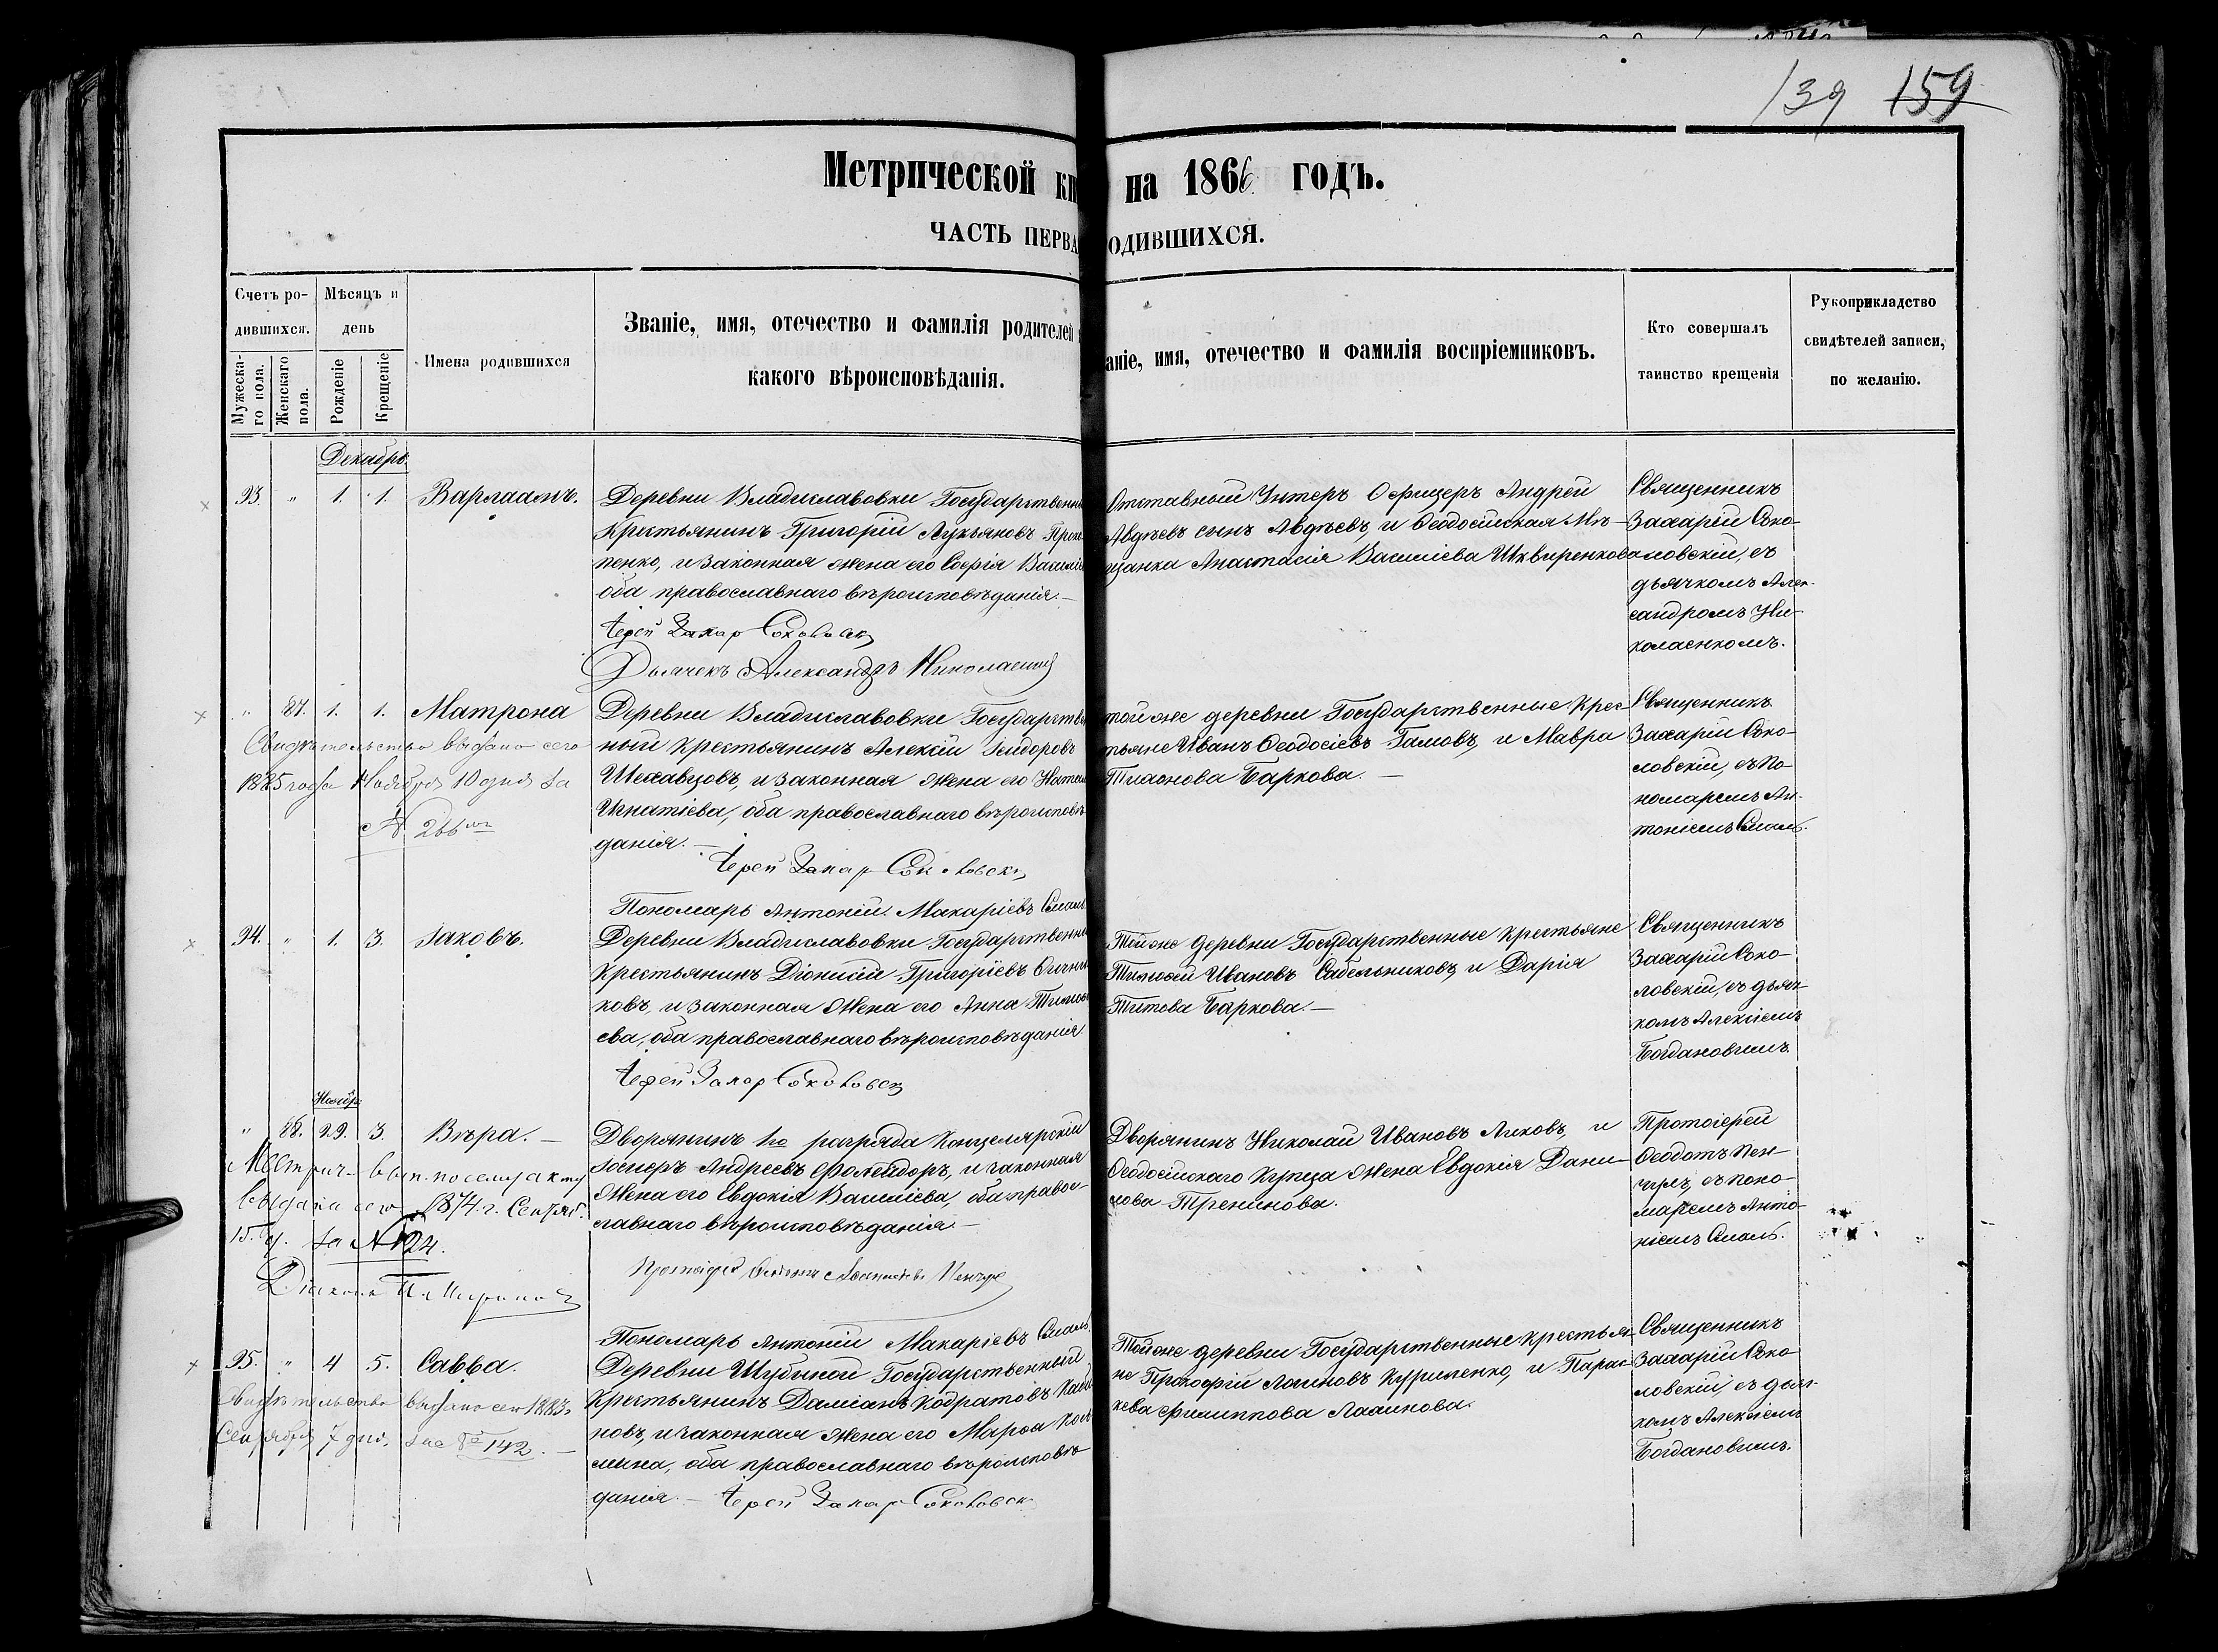 139 159
Метрической кн на 1866 годъ.
ЧАСТЬ ПЕРВА ОДИВШИХСЯ.
Счетъ ро-
дившихся.
Мужеска-
го пола.
Женскаго
пола.
Мѣсяцъ и
день
Рожденіе
Крещеніе
Имена родившихся
Званіе, имя, отечество и фамилія родителей
какого вѣроисповѣданія.
аніе, имя, отечество и фамилія воспріемниковъ.
Кто совершалъ
таинство крещенія
Рукоприкладство
свидѣтелей записи,
по желанію.
Декабрь.
93. " 1. 1. Варлаамъ.
Деревни Владиславовки Государственн
Крестьянинъ Григорій Лукьяновъ Прок
пенко, и законная жена его Софія Василіе
оба православнаго вѣроисповѣданія.—
Іерей Захар Соколовск
Дьячекъ Александръ Николаенко
Отставный Унтеръ Офицеръ Андрей
Авдѣевъ сынъ Авдѣевъ, и Ѳеодосійская Мѣ-
щанка Анастасія Василіева Шквиренкова
Священникъ
Захарій Соко-
ловскій, съ
дьячкомъ Алек-
сандромъ Ни-
колаенкомъ.
" 87. 1. 1. Матрона
Свидѣтельство выдано сего
1885 года Ноября 10 дня за
№ 266
Деревни Владиславовки Государств
ный крестьянинъ Алексій Ісидоровъ
Шехавцовъ, и законная жена его
Игнатіева, оба православнаго вѣроисповѣ
данія.—
Іерей Захар Соколовск
Пономарь Антоній Макаріевъ
той же деревни Государственные Крес-
тьяне Иванъ Ѳеодосіевъ Гамовъ, и Мавра
Баркова.—
Священникъ
Захарій Соко-
ловскій, съ по-
номаремъ Ан-
тоніемъ
94. " 1. 3. Іаковъ.
Деревни Владиславовки Государственн
Крестьянинъ Діонисій Григоріевъ
ковъ, и законная жена его Анна Тимоѳ
ева, оба православнаго вѣроисповѣданія
Іерей Захар Соколовск
Той же деревни Государственные крестьяне
Тимоѳей Ивановъ Сабельниковъ, и Дарія
Титова Баркова.—
Священникъ
Захарій Соко-
ловскій, съ дьяч-
комъ Алексіемъ
Богдановымъ.
Ноябрь
" 88. 29. 3. Вѣра.—
Метрич. вып. по сему акту
выдана сего 1874. г. Сентяб.
15. д. за № 124.
Діаконъ
Дворянинъ 1го разряда Концелярскій
Андреевъ и законная
жена его Евдокія Василіева, оба правос-
лавнаго вѣроисповѣданія.—
Протоіерей
Пономарь Антоній Макаріевъ
Дворянинъ Николай Ивановъ Лиховъ, и
Ѳеодосійскаго Купца жена Евдокія Дани-
лова Тренинова.
Протоіерей
Ѳеодотъ
съ поно-
маремъ Анто-
ніемъ
95. " 4 5. Савва.
Свидѣтельство выдано сего 1883.
Сентября 7 дня, за № 142.—
Деревни Шубиной Государственный
Крестьянинъ Даміанъ Кодратовъ
новъ, и законная жена его Марѳа
мина, оба православнаго вѣроисповѣ
данія.— Іерей Захар Соколовск
Той же деревни Государственные крестья-
не Прокофій Логиновъ и Парас-
кева Филиппова
Священникъ
Захарій Соко
ловскій съ дьяч-
комъ Алексіемъ
Богдановымъ.